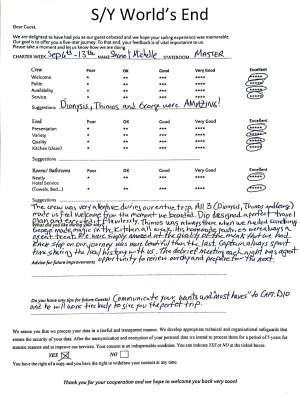 S/Y World's End
Dear Guest,
We are delighted to have had you as our guest onboard and we hope your sailing experience was memorable.
Our goal is to offer you a five-star journey. To that end, your feedback is of vital importance to us.
Please take a moment and let us know how we are doing
CHARTER WEEK Sept 6th - 13th NAME Michelle STATEROOM MASTER
Crew Poor OK Good Very Good Excellent
Welcome * ** *** **** *****
Polite * ** *** **** *****
Availability * ** *** **** *****
Service * ** *** **** *****
Suggestions Dionysis, Thimios and George were AMAZING!
Food Poor OK Good Very Good Excellent
Presentation * ** *** **** *****
Variety * ** *** **** *****
Quality * ** *** **** *****
Kitchen (clean) * ** *** **** *****
Suggestions
Rooms/ Bathrooms Poor OK Good Very Good Excellent
Neatly * ** *** **** *****
Hotel Service
(Towels, Bed...) * ** *** **** *****
Suggestions
The crew was very attentive during our entire trip. All 3 (Dionysis, Thimios and George)
made us feel welcome from the moment we boarded. Dio designed a perfect travel
plan and executed it flawlessly. Thimios was always there when we needed something
What did you like during your stay?
George made magic in the kitchen all week. His homemade were always a
great treat. We were highly amazed at the quality of the meals that we had
Each stop on our journey was more beautiful than the last. Captain always spent
time sharing the history with us. The debrief meeting each night was a great
Advice for future improvements opportunity to review the day and prepare for the next.
Do you have any tips for future Guests? Communicate your "wants and must haves" to Capt. DIO
and he will work tirelessly to give you the perfect trip.
We assure you that we process your data in a lawful and transparent manner. We develop appropriate technical and organizational safeguards that
ensure the security of your data. After the anonymization and encryption of your personal data we intend to process them for a period of 5 years for
statistic reasons and to improve our services. Your consent is an indispensable condition. You can indicate YES or NO at the ticked boxes.
YES NO
You have the right of a copy and you have the right to withdraw your consent at any time.
Thank you for your cooperation and we hope to welcome you back very soon!